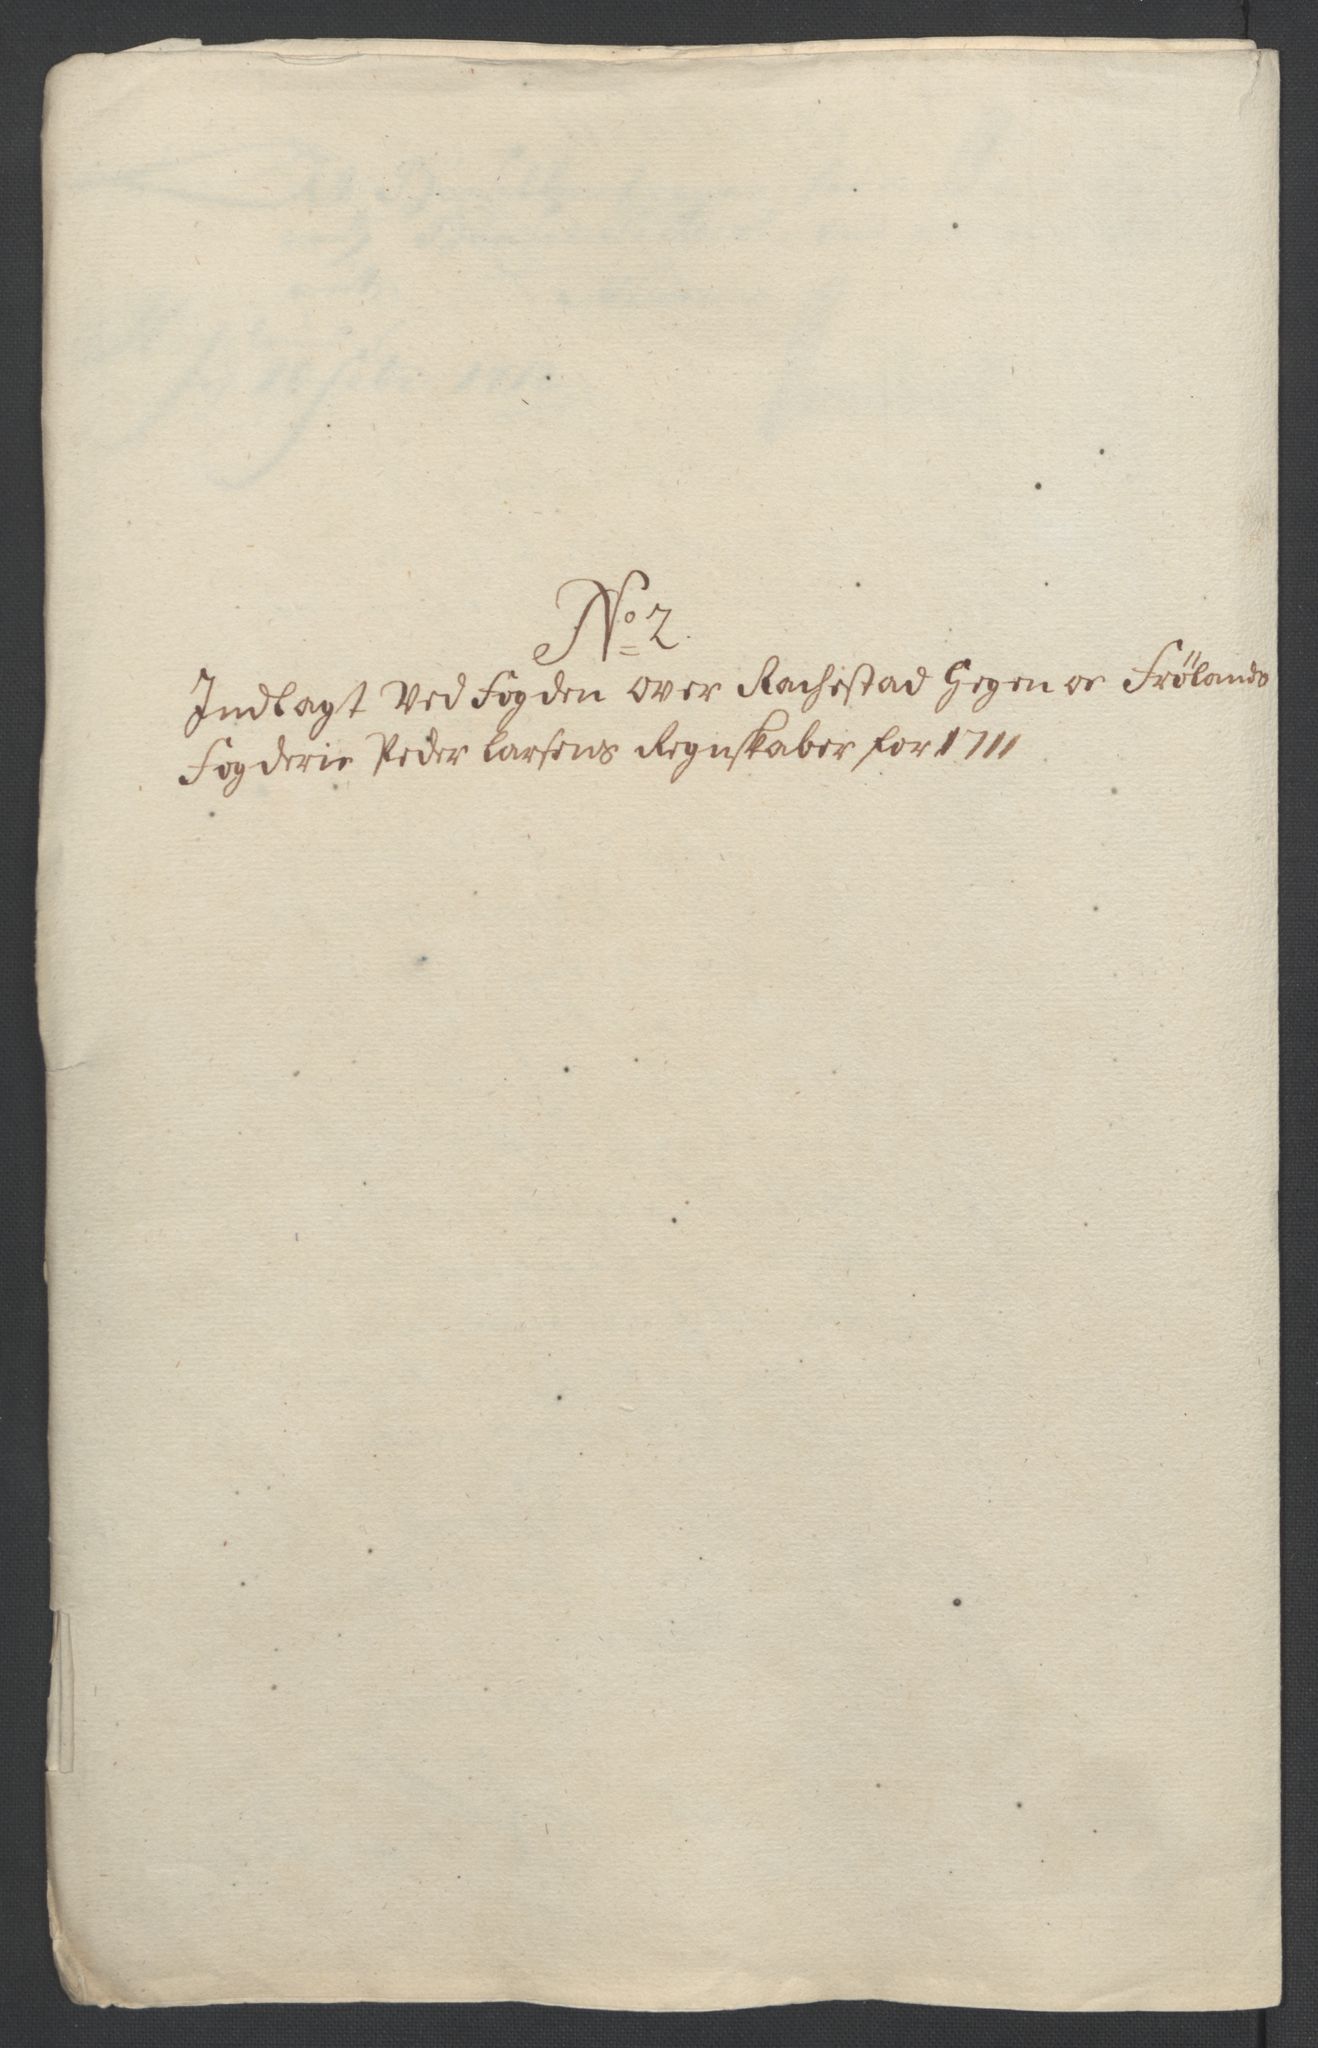 No: 2.
Indlagt Ved Fogden over Rachestad Heggen oc Frölands
Fogderie Peder Larsens Regnskaber for 1711